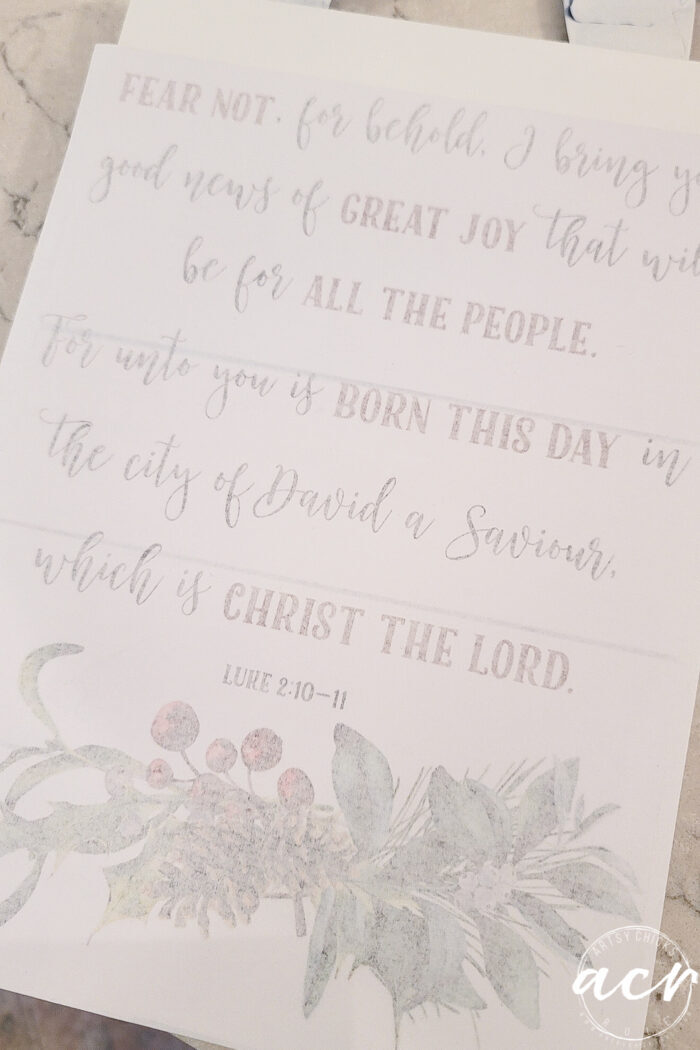 FEAR NOT, for behold, I bring
good news of GREAT JOY that
be for ALL THE PEOPLE.
For unto you is BORN THIS DAY in
the city of David a Saviour,
which is CHRIST THE LORD.
LUKE 2:10-11
ARTSY CHICKS
acr